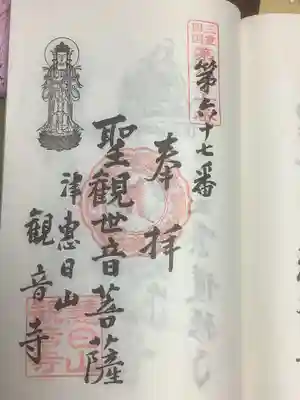 第六十七番
奉拝
聖觀世音菩薩
津 惠日山
観音寺